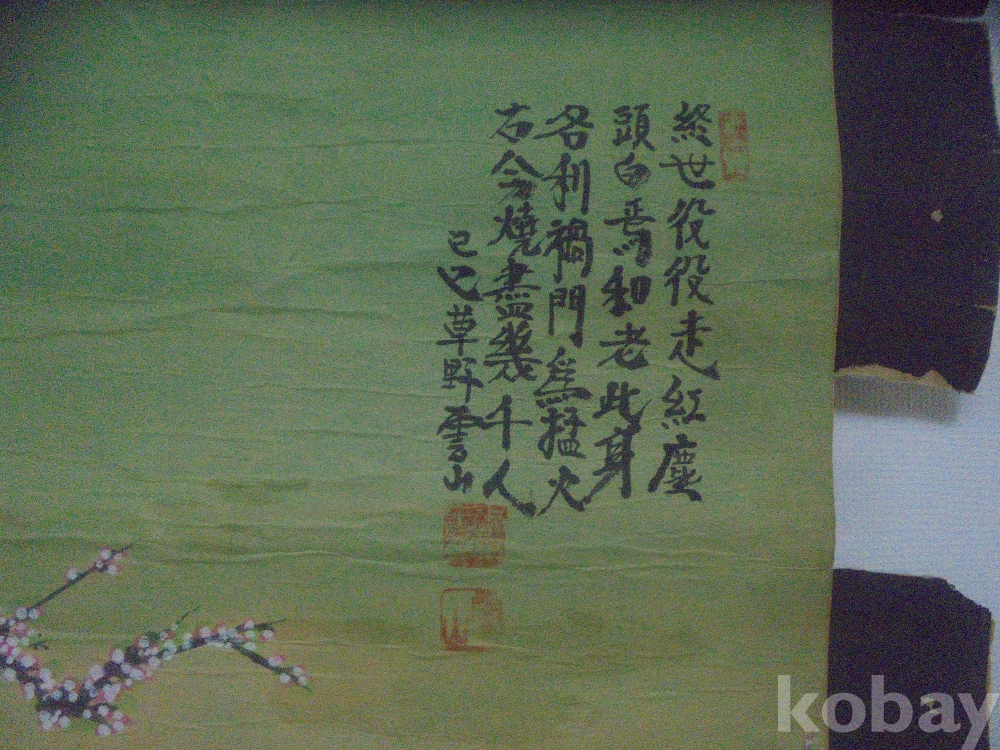 終世役役走紅塵
頭白焉知老此身
名利禍門爲猛火
古今燒盡幾千人
己巳草野雲山
kobay